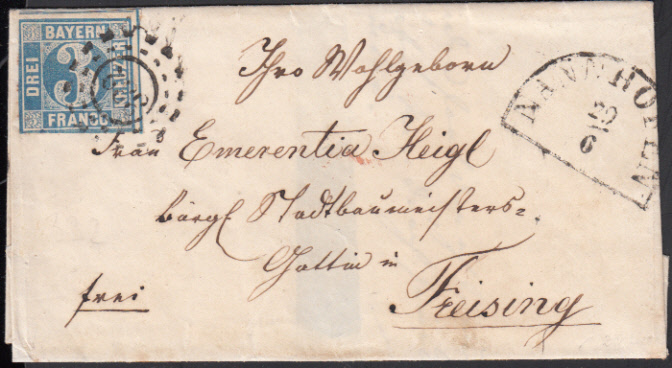 BAYERN
DREI
3
KREUZER
FRANCO
NANNHOFEN
20
6
Ihro Wohlgeborn
Frau Emerentia Heigl
bürgl Stadtbaumeisters=
Gattin in
Freising
frei